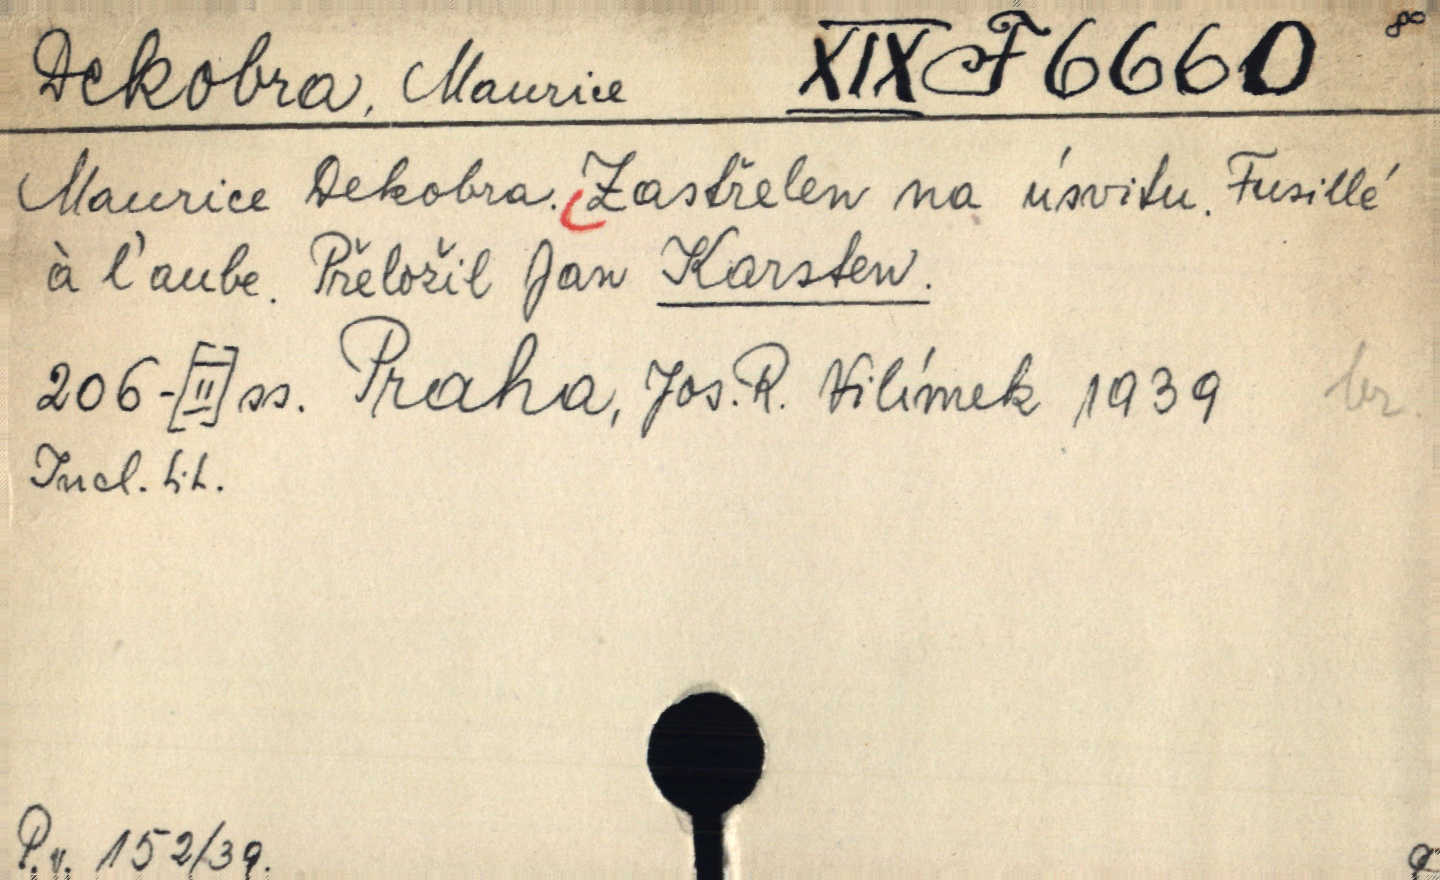 Dekobra, Maurice XIX F 6660 8°
Maurice Dekobra. Zastřelen na úsvitu. Fusillé
à l'aube. Přeložil Jan Karsten.
206-[II] ss. Praha, Jos. R. Vilímek 1939 br.
Incl. tit.
P.v. 152/39.